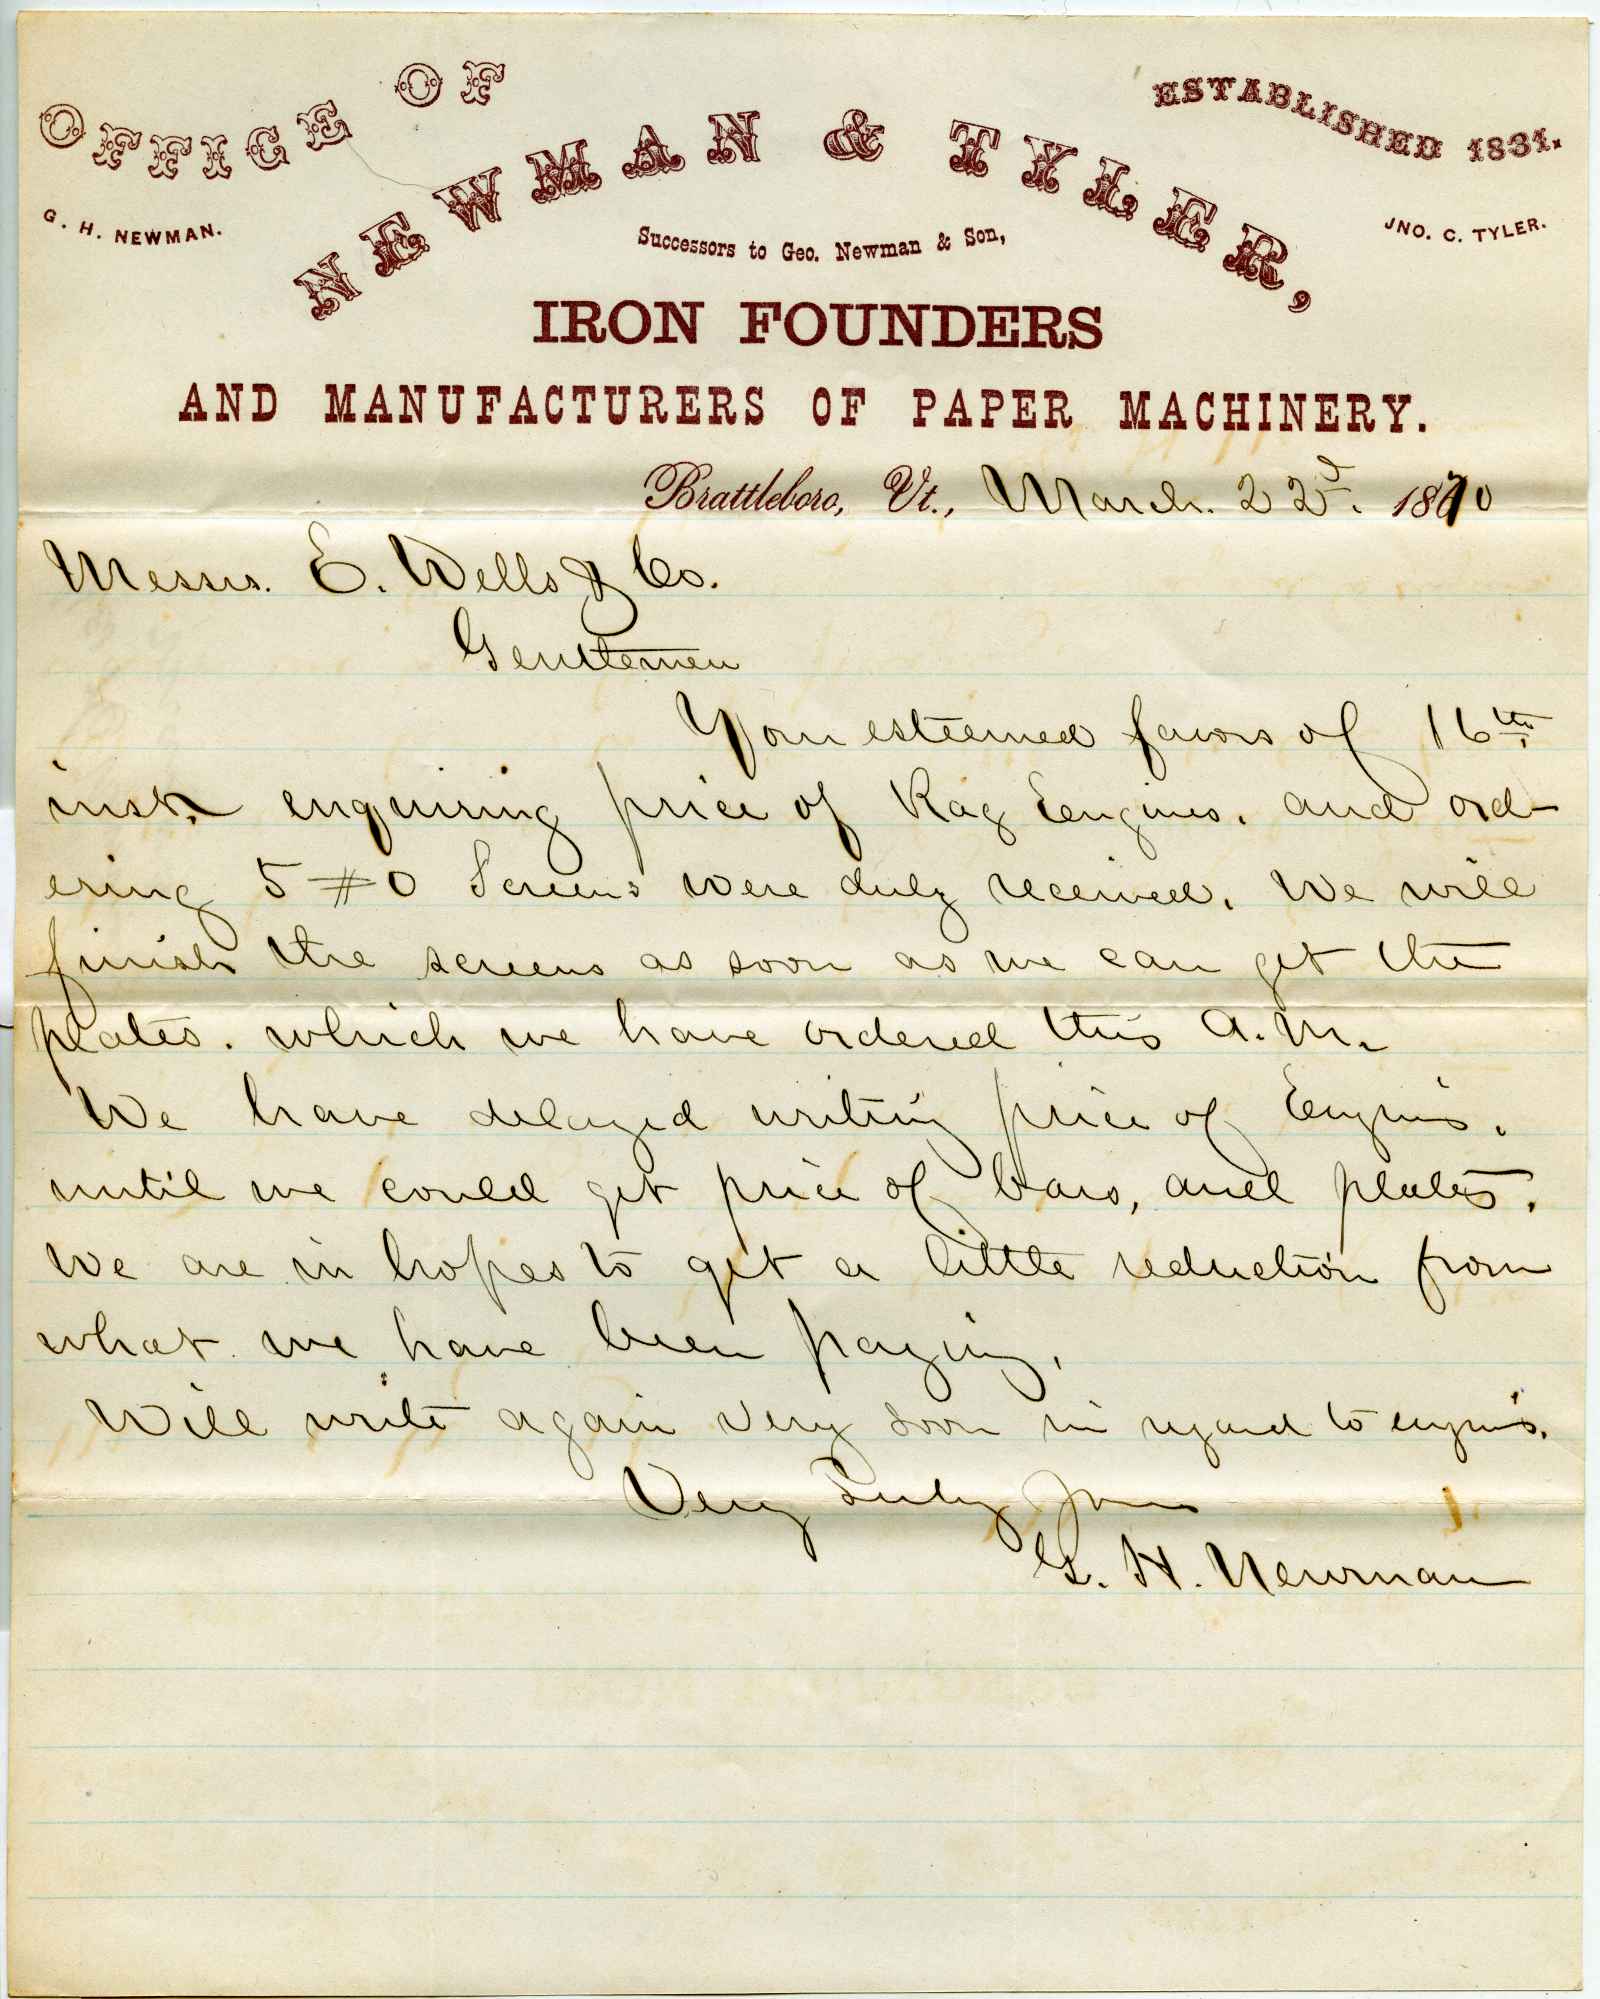 OFFICE OF
ESTABLISHED 1831.
NEWMAN & TYLER,
G. H. NEWMAN.
JNO. C. TYLER.
Successors to Geo. Newman & Son,
IRON FOUNDERS
AND MANUFACTURERS OF PAPER MACHINERY.
Brattleboro, Vt., March. 22d. 1870
Messrs. E. Wells & Co.
Gentlemen
Your esteemed favors of 16th
inst. enquiring price of Rag Eengines. and ord-
ering 5 #0 Screens were duly received. We will
finish the screens as soon as we can get the
plates. which we have ordered this A.M.
We have delayed writing price of Engins.
until we could get price of bars, and plates.
We are in hopes to get a little reduction from
what we have been paying.
Will write again very soon in regard to engins.
Very Truly Yours
G. H. Newman